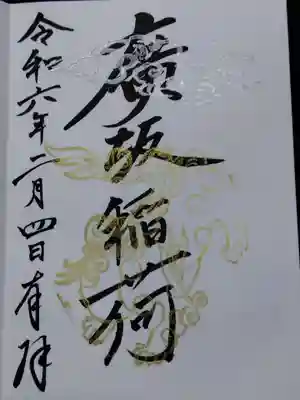 廣坂稲荷
令和六年二月四日有拝